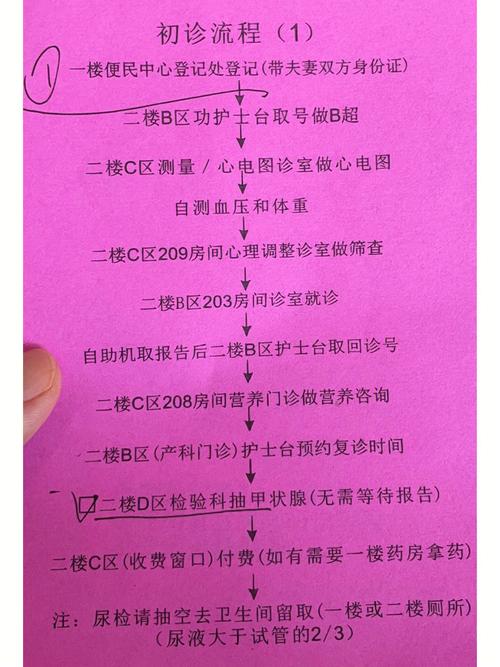 初诊流程（1）
① 一楼便民中心登记处登记(带夫妻双方身份证)
二楼B区功护士台取号做B超
二楼C区测量／心电图诊室做心电图
自测血压和体重
二楼C区209房间心理调整诊室做筛查
二楼B区203房间诊室就诊
自助机取报告后二楼B区护士台取回诊号
二楼C区208房间营养门诊做营养咨询
二楼B区(产科门诊)护士台预约复诊时间
二楼D区检验科抽甲状腺(无需等待报告)
二楼C区(收费窗口)付费(如有需要一楼药房拿药)
注：尿检请抽空去卫生间留取(一楼或二楼厕所)
（尿液大于试管的2/3）